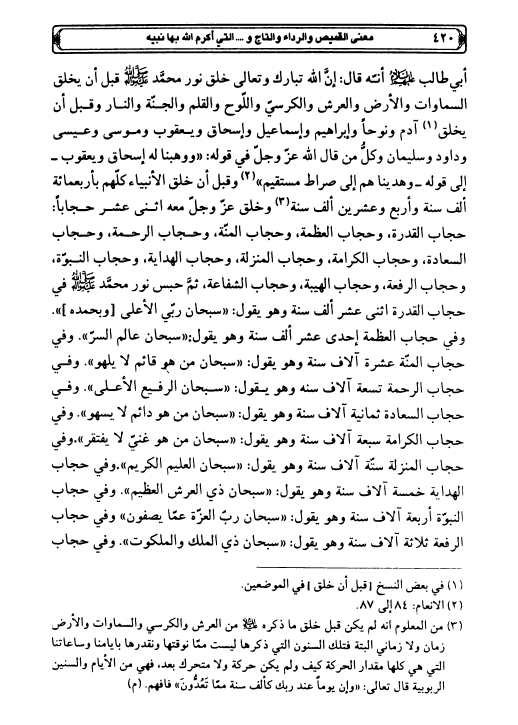 ٤٢٠ معنى القميص والرداء والتاج و .... التي أكرم الله بها نبيه
أبي طالب عليه السلام أنّه قال: إنَّ الله تبارك وتعالى خلق نور محمّد ﷺ قبل أن يخلق
السماوات والأرض والعرش والكرسيّ واللّوح والقلم والجنّة والنار وقبل أن
يخلق(١) آدم ونوحاً وإبراهيم وإسماعيل وإسحاق ويعقوب وموسى وعيسى
وداود وسليمان وكلَّ من قال الله عزّ وجلّ في قوله: «ووهبنا له إسحاق ويعقوب ـ
إلى قوله ـ وهديناهم إلى صراط مستقيم»(٢) وقبل أن خلق الأنبياء كلّهم بأربعمائة
ألف سنة وأربع وعشرين ألف سنة(٣) وخلق عزّ وجلّ معه اثنى عشر حجاباً:
حجاب القدرة، وحجاب العظمة، وحجاب المنّة، وحجاب الرحمة، وحجاب
السعادة، وحجاب الكرامة، وحجاب المنزلة، وحجاب الهداية، وحجاب النبوّة،
وحجاب الرفعة، وحجاب الهيبة، وحجاب الشفاعة، ثمَّ حبس نور محمّد ﷺ في
حجاب القدرة اثنى عشر ألف سنة وهو يقول: «سبحان ربّي الأعلى [وبحمده]».
وفي حجاب العظمة إحدى عشر ألف سنة وهو يقول:«سبحان عالم السرّ». وفي
حجاب المنّة عشرة آلاف سنة وهو يقول: «سبحان من هو قائم لا يلهو». وفي
حجاب الرحمة تسعة آلاف سنه وهو يقول: «سبحان الرفيع الأعلى». وفي
حجاب السعادة ثمانية آلاف سنة وهو يقول: «سبحان من هو دائم لا يسهو». وفي
حجاب الكرامة سبعة آلاف سنة وهو يقول: «سبحان من هو غنيّ لا يفتقر».وفي
حجاب المنزلة ستّة آلاف سنة وهو يقول: «سبحان العليم الكريم».وفي حجاب
الهداية خمسة آلاف سنة وهو يقول: «سبحان ذي العرش العظيم». وفي حجاب
النبوّة أربعة آلاف سنة وهو يقول: «سبحان ربّ العزّة عمّا يصفون» وفي حجاب
الرفعة ثلاثة آلاف سنة وهو يقول: «سبحان ذي الملك والملكوت». وفي حجاب
(١) في بعض النسخ [قبل أن خلق] في الموضعين.
(٢) الانعام: ٨٤ إلى ٨٧.
(٣) من المعلوم انه لم يكن قبل خلق ما ذكره عليه السلام من العرش والكرسي والسماوات والأرض
زمان ولا زماني البتة فتلك السنون التي ذكرها ليست ممّا نوقتها ونقدرها بايامنا وساعاتنا
التي هي كلها مقدار الحركة كيف ولم يكن حركة ولا متحرك بعد، فهي من الأيام والسنين
الربوبية قال تعالى: «وإن يوماً عند ربك كألف سنة ممّا تَعُدُّونَ» فافهم. (م)